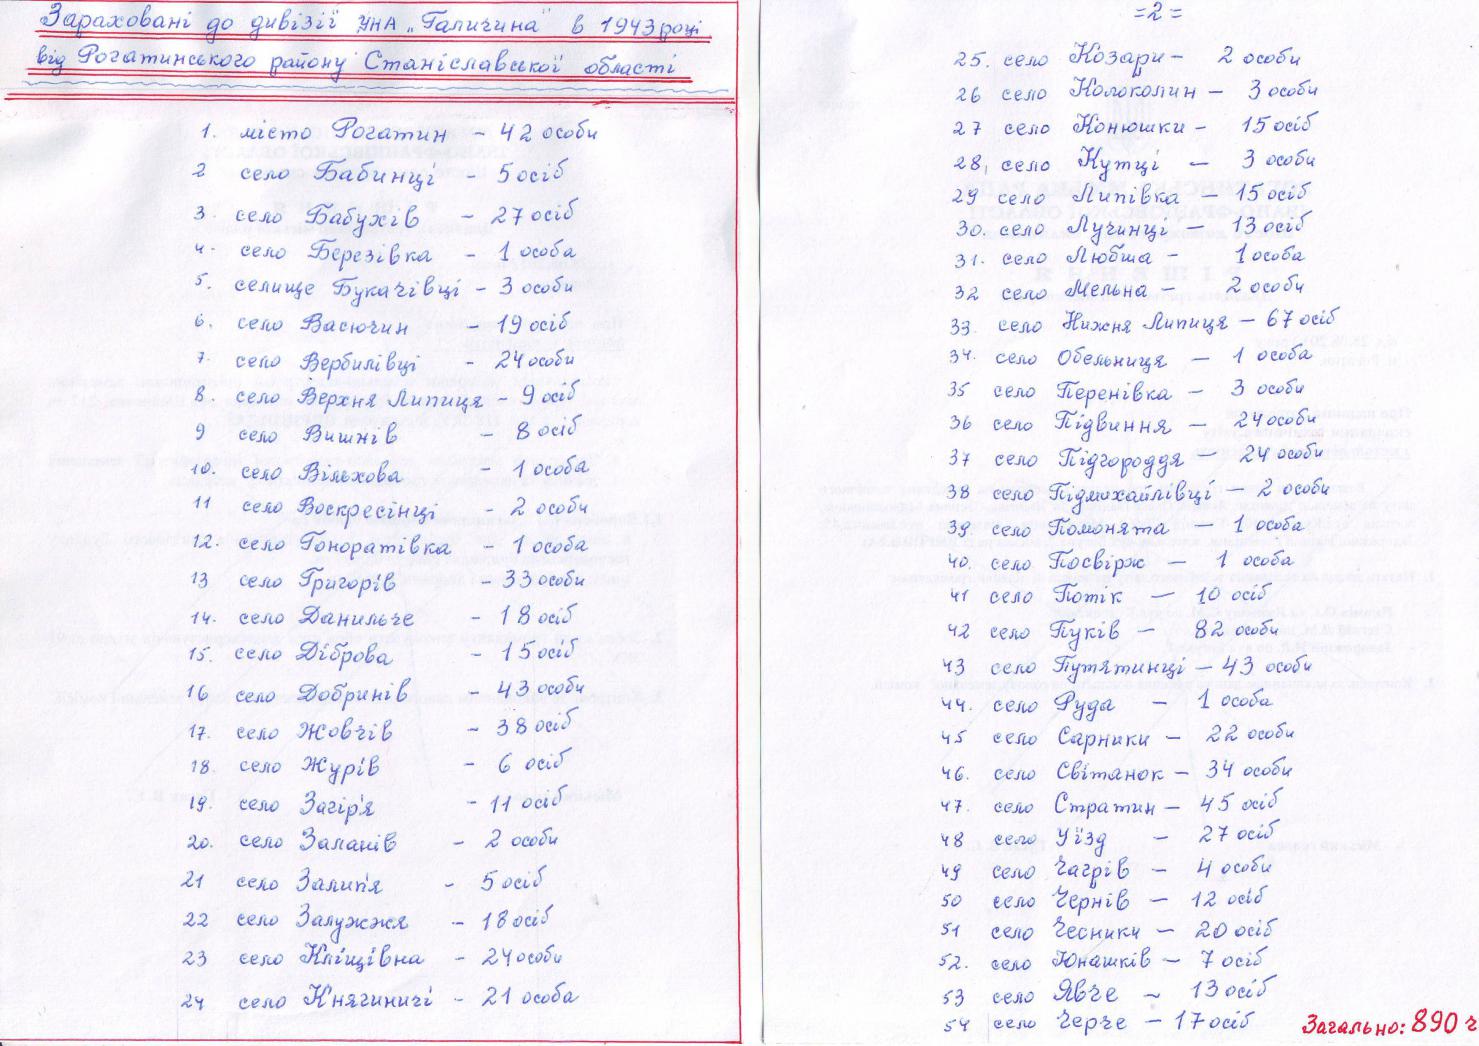 Зараховані до дивізії УНА „Галичина" в 1943 році
від Рогатинського району Станіславської області
1. місто Рогатин - 42 особи
2 село Бабинці - 5 осіб
3. село Бабухів - 27 осіб
4. село Березівка - 1 особа
5. селище Букачівці - 3 особи
6. село Васючин - 19 осіб
7. село Вербилівці - 24 особи
8. село Верхня Липиця - 9 осіб
9 село Вишнів - 8 осіб
10. село Вільхова - 1 особа
11 село Воскресінці - 2 особи
12. село Гоноратівка - 1 особа
13 село Григорів - 33 особи
14. село Данильче - 18 осіб
15. село Діброва - 15 осіб
16 село Добринів - 43 особи
17. село Жовчів - 38 осіб
18. село Журів - 6 осіб
19. село Загір'я - 11 осіб
20. село Заланів - 2 особи
21 село Залип'я - 5 осіб
22 село Залужжя - 18 осіб
23 село Кліщівна - 24 особи
24 село Княгиничі - 21 особа
=2=
25. село Козари - 2 особи
26 село Колоколин - 3 особи
27 село Конюшки - 15 осіб
28, село Кутці - 3 особи
29 село Липівка - 15 осіб
30. село Лучинці - 13 осіб
31. село Любша - 1 особа
32 село Мельна - 2 особи
33. село Нижня Липиця - 67 осіб
34. село Обельниця - 1 особа
35 село Перенівка - 3 особи
36 село Підвиння - 24 особи
37 село Підгороддя - 24 особи
38 село Підмихайлівці - 2 особи
39. село Помонята - 1 особа
40. село Посвірж - 1 особа
41 село Потік - 10 осіб
42 село Пуків - 82 особи
43 село Путятинці - 43 особи
44. село Руда - 1 особа
45 село Сарники - 22 особи
46. село Світанок - 34 особи
47. село Стратин - 45 осіб
48 село Уїзд - 27 осіб
49 село Чагрів - 4 особи
50 село Чернів - 12 осіб
51 село Чесники - 20 осіб
52. село Юнашків - 7 осіб
53 село Явче - 13 осіб
54 село Черче - 17 осіб
Загально: 890 ч